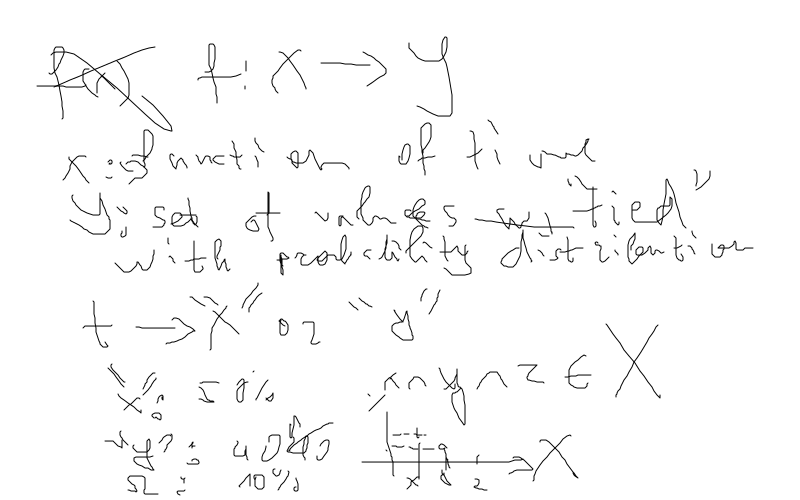 f: X → Y
X: function of time
Y: set of values "tied"
with probability distribution
t → "x" or "y"
"x": 50%
x ∩ y ∩ z ∈ X
"y": 40%
z: 10%
x y z X